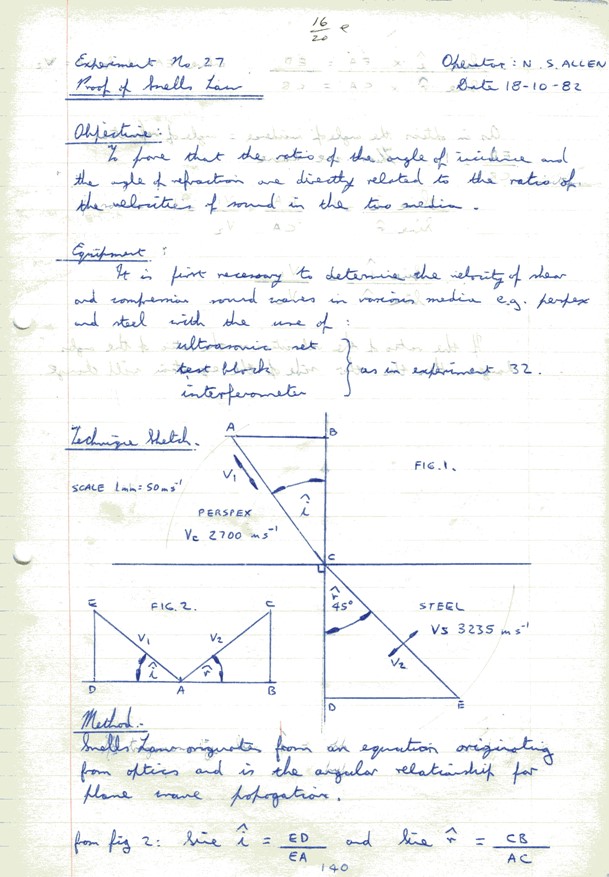 16
20
Experiment No. 27 Operator: N. S. ALLEN
Proof of Snells Law Date 18-10-82
Objective:
To prove that the ratio of the angle of incidence and
the angle of refraction are directly related to the ratio of
the velocities of sound in the two media.
Equipment:
It is first necessary to determine the velocity of shear
and compression sound waves in various media e.g. perspex
and steel with the use of:
ultrasonic set
test block } as in experiment 32.
interferometer
Technique Sketch.
A B
V1 FIG.1.
SCALE 1mm = 50ms⁻¹
î
PERSPEX
Vc 2700 ms⁻¹
C
r̂
45°
STEEL
Vs 3235 ms⁻¹
V2
D E
E FIG. 2. C
V1 V2
î r̂
D A B
Method:-
Snells Law originates from an equation originating
from optics and is the angular relationship for
plane wave popogation.
from fig 2: Sine î = ED/EA and Sine r̂ = CB/AC
140